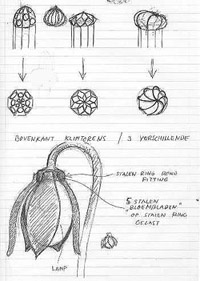 BOVENKANT KLIMTORENS / 3 VERSCHILLENDE
STALEN RING ROND
FITTING
5 STALEN
"BLOEMBLADEN"
OP STALEN RING
GELAST
LAMP